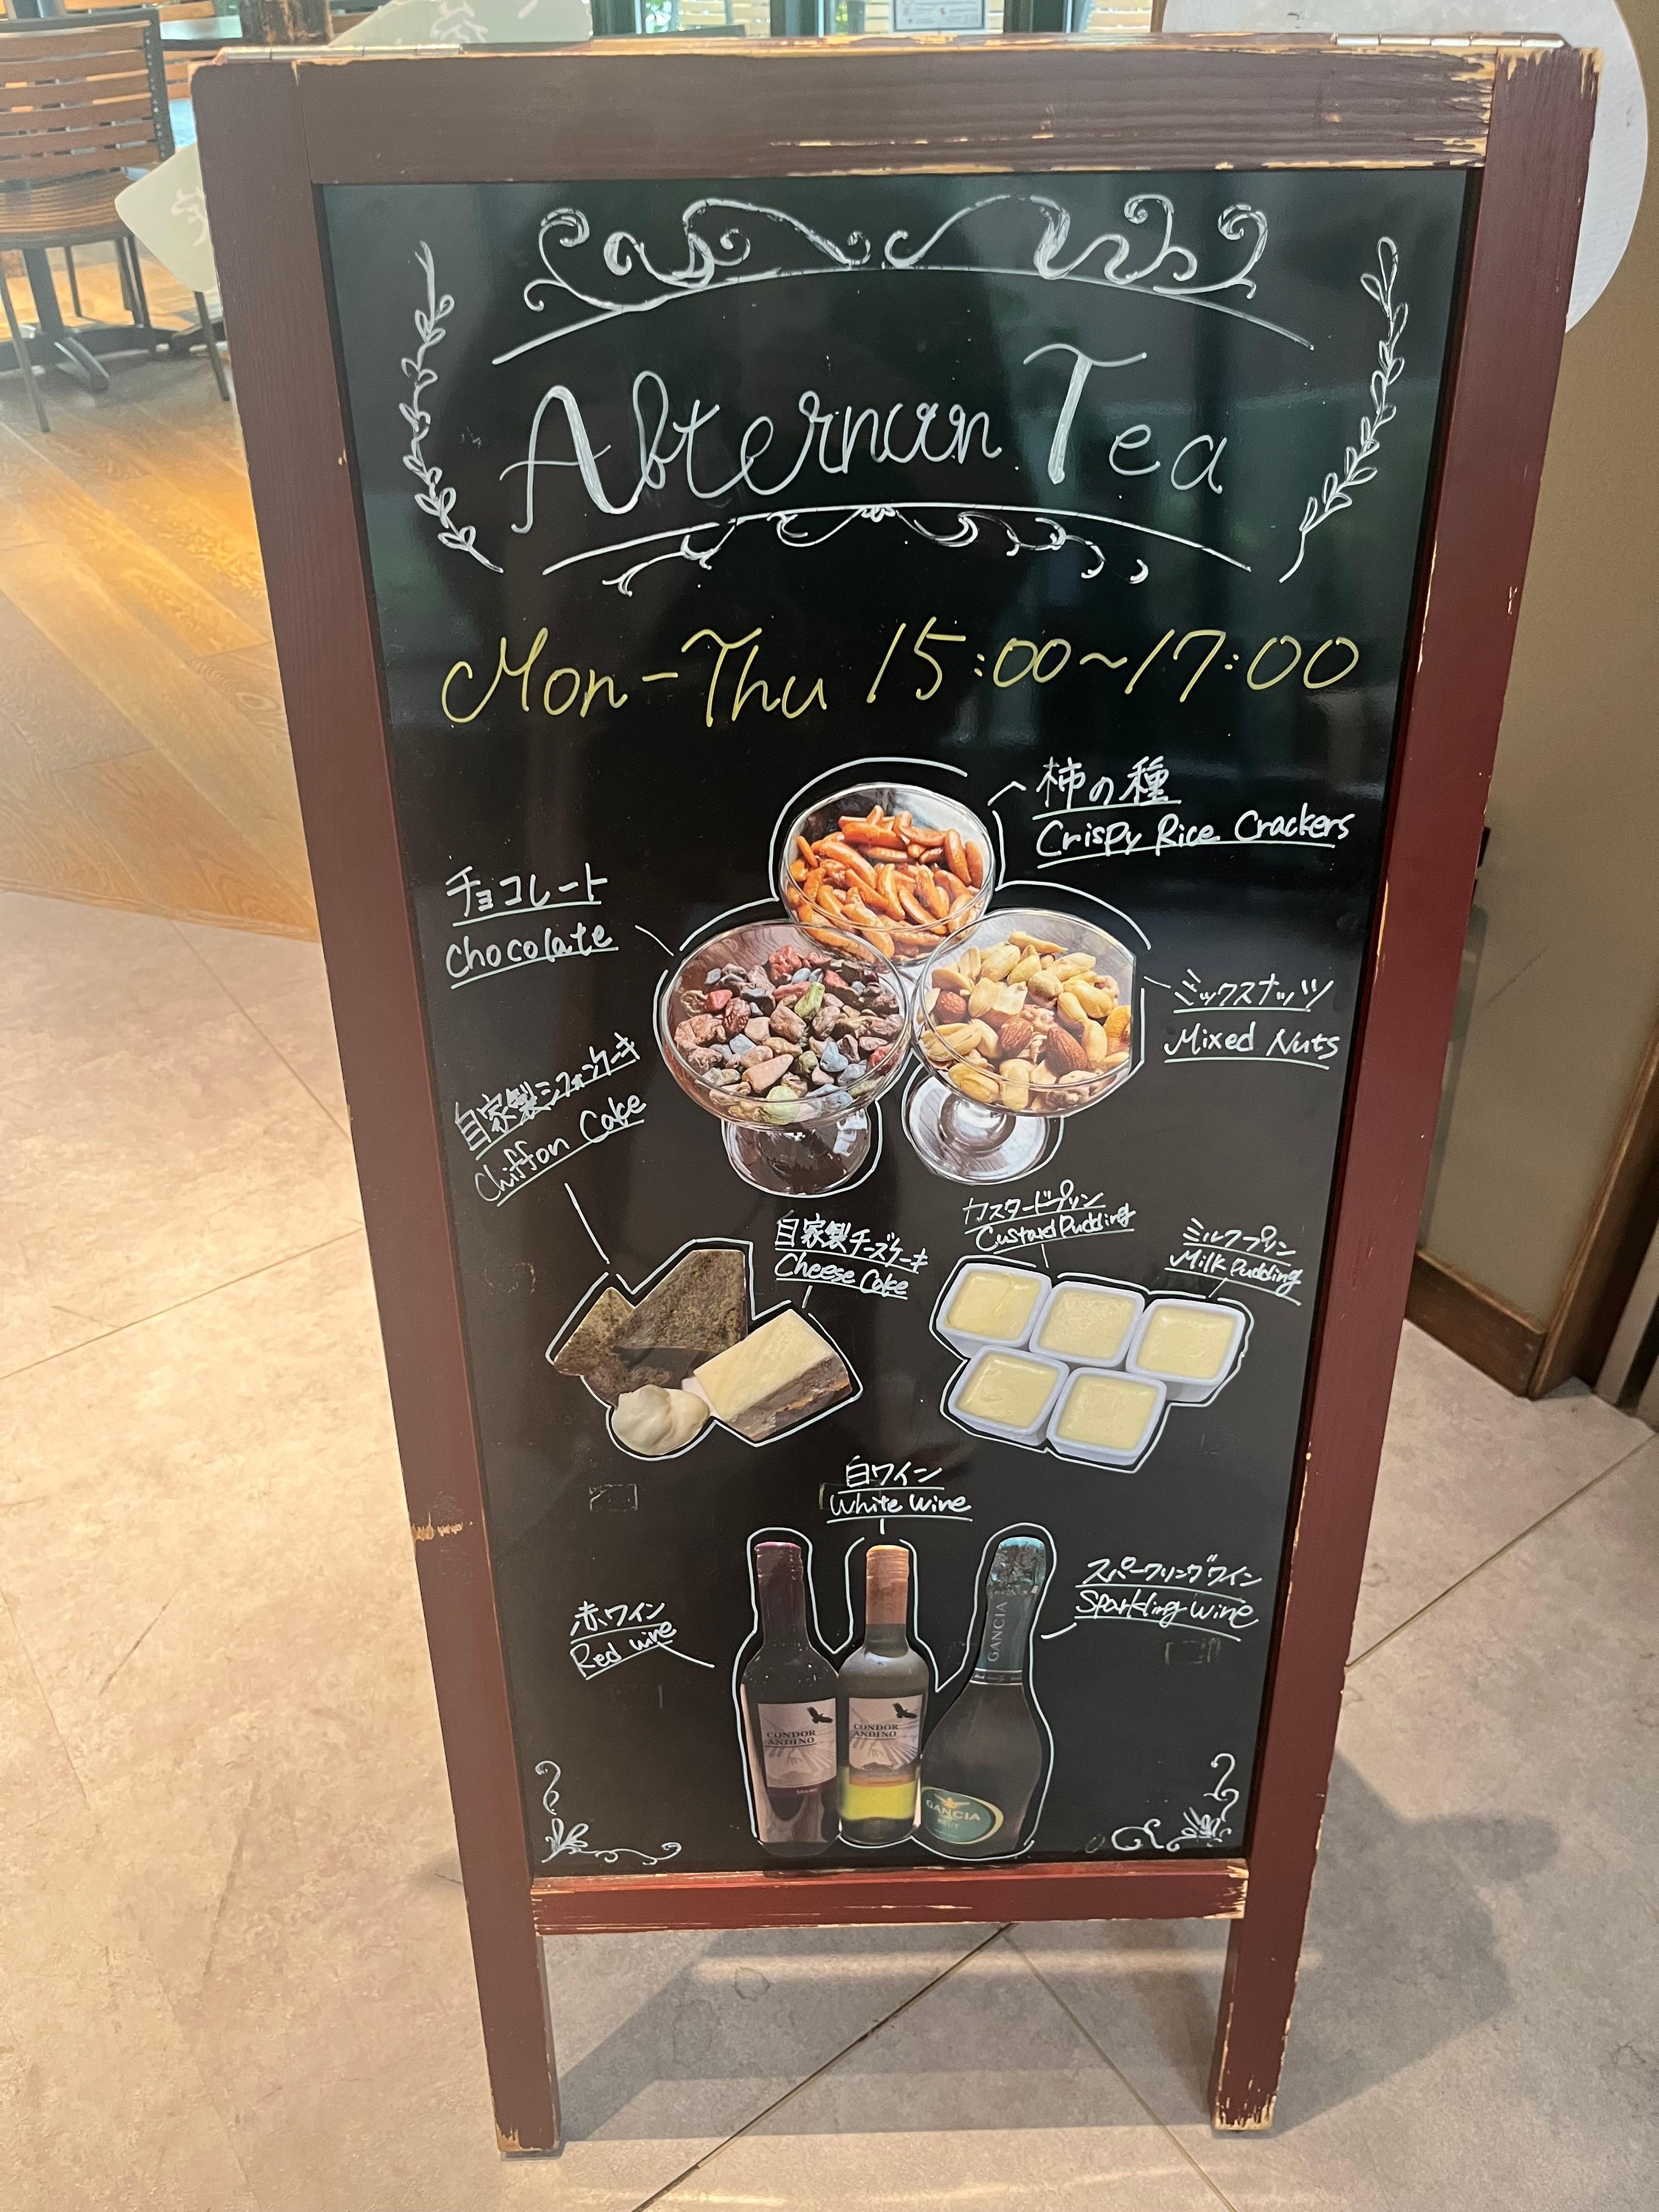 Afternoon Tea
Mon-Thu 15:00~17:00
柿の種
Crispy Rice Crackers
チョコレート
chocolate
ミックスナッツ
Mixed Nuts
自家製シフォンケーキ
Chiffon Cake
自家製チーズケーキ
Cheese Cake
カスタードプリン
Custard Pudding
ミルクプリン
Milk Pudding
白ワイン
White wine
赤ワイン
Red wine
スパークリングワイン
Sparkling wine
CONDOR
ANDINO
CONDOR
ANDINO
GANCIA
GANCIA
BRUT